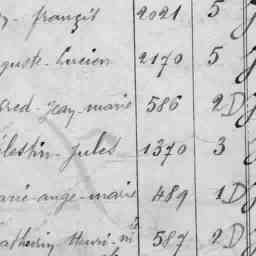 françis 2021 5
guste-Lucien 2170 5
fred-Jean-marie 586 2D
élestin-Jules 1370 3
arie-ange-marie 489 1D
atherin Henri-m ie 587 2D